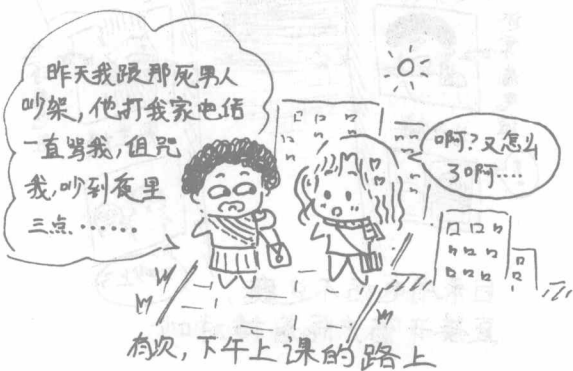 昨天我跟那死男人
吵架，他打我家电话
一直骂我，诅咒
我，吵到夜里
三点……
啊？又怎么
了啊….
有次，下午上课的路上